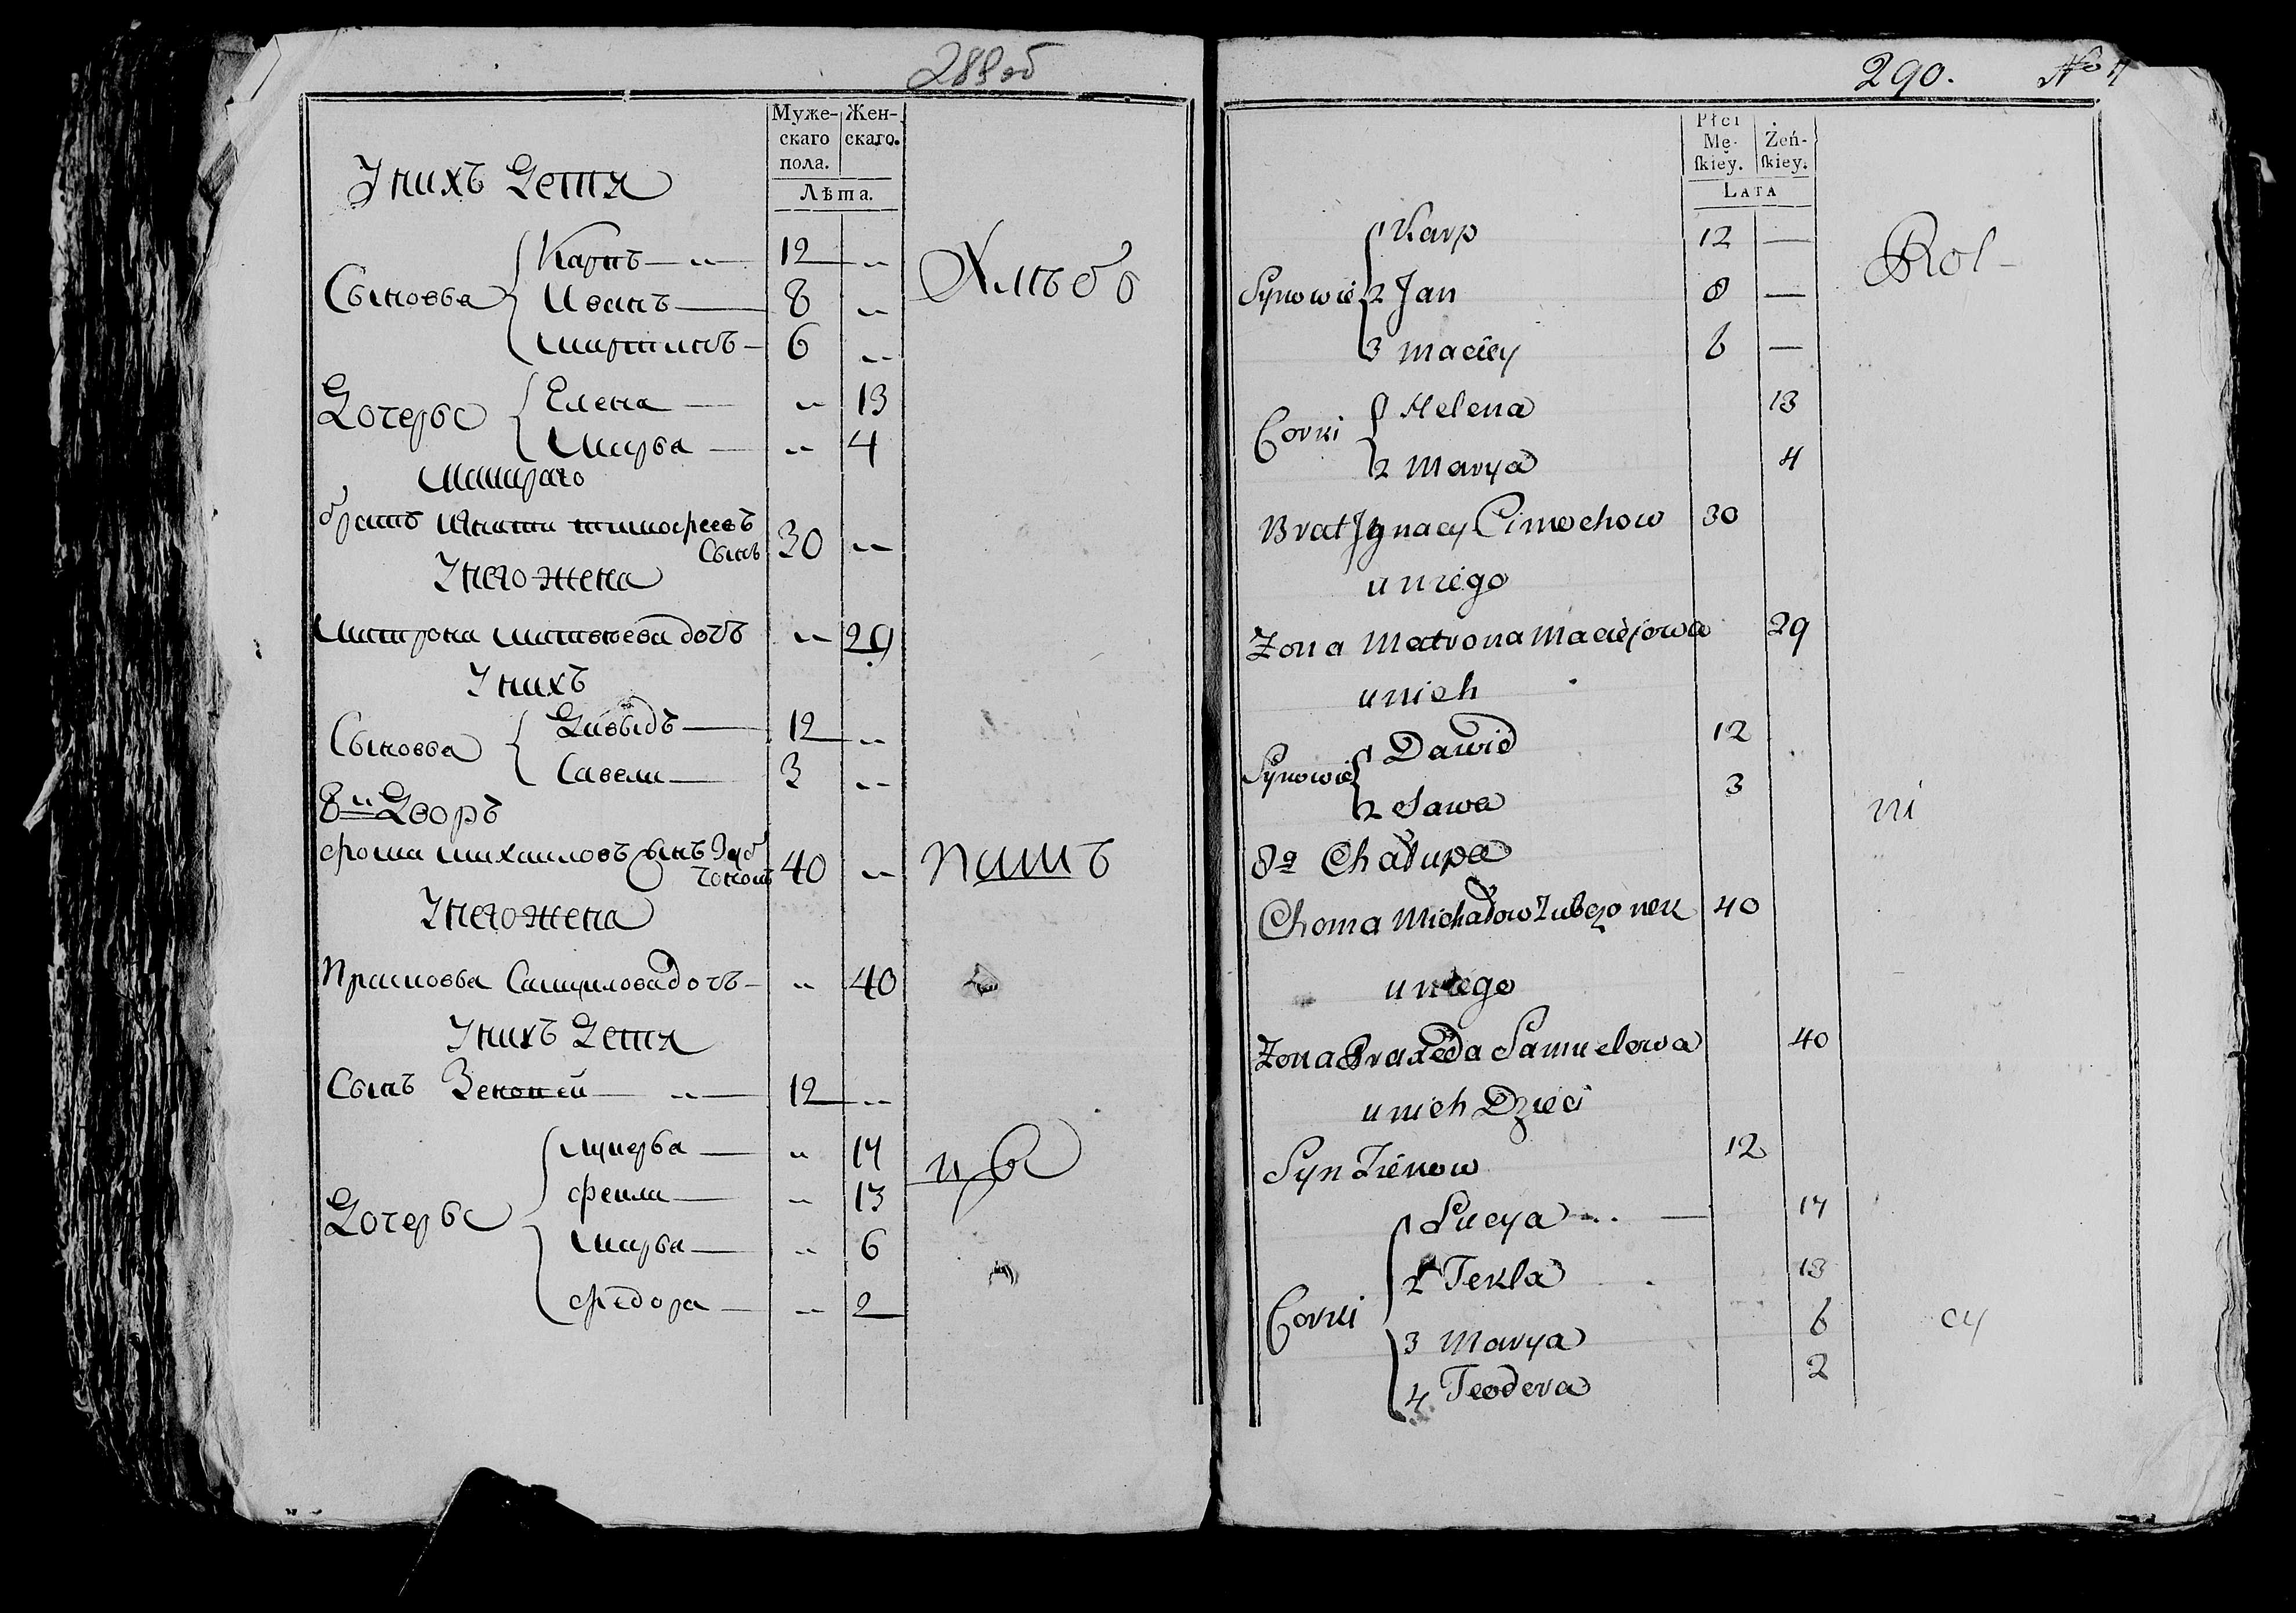 289 об
Муже-
скаго
пола.
Жен-
скаго.
Лѣта.
У нихъ Детя
Сыновья
Карпъ 12
Иванъ 8
Мартинъ 6
Дочерьи
Елена 13
Марья 4
Матраго
братъ Игнати тимофеевъ
Сынъ 30
У него жена
Матрона Матвѣева дочь 29
У нихъ
Сыновья
Давыдъ 12
Савели 3
8й Дворъ
фома михаиловъ Сынъ Зуб
чонокъ 40
У него жена
Прасковья Самуилова дочь 40
У нихъ Детя
Сынъ Зеновей 12
Дочерьи
Лукерья 14
фекла 13
Марья 6
федора 2
Хлѣбо
паш
цы
290.
№
Płci
Mę-
ſkiey.
Żeń-
ſkiey.
LATA
Synowie
1 Karp 12 —
2 Jan 8 —
3 Maciey 6 —
Corki
1 Helena 13
2 Marya 4
Brat Jgnacy Cimochow 30
u niego
Zona Matrona Maciejowa 29
u nich
Synowie
1 Dawid 12
2 Sawa 3
8a Chałupa
Choma Michałow Zubczonek 40
u niego
Zona Praxeda Samuelowa 40
u nich Dzieci
Syn Zienow 12
Corki
1 Lucya 14
2 Tekla 13
3 Marya 6
4 Teodora 2
Rol-
ni
cy